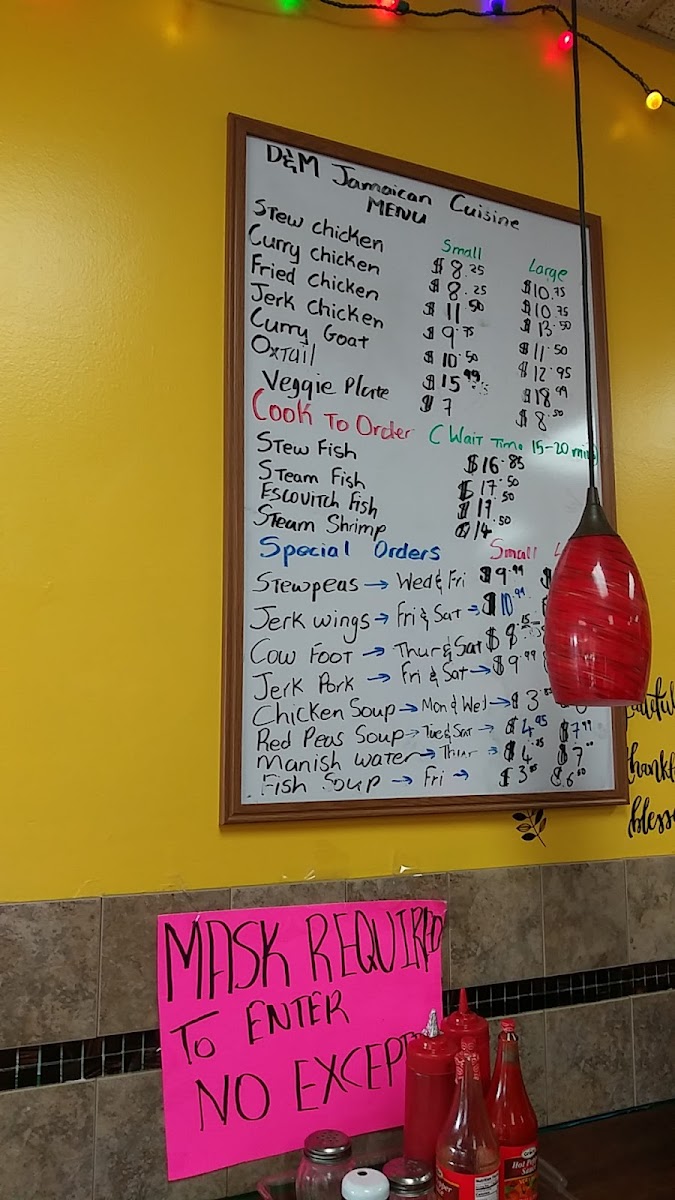 D&M Jamaican Cuisine
MENU
Small Large
Stew chicken $8.25 $10.75
Curry chicken $8.25 $10.75
Fried chicken $11.50 $13.50
Jerk chicken $9.75 $11.50
Curry Goat $10.50 $12.95
Oxtail $15.99 $18.99
Veggie Plate $7 $8.50
Cook To Order (Wait Time 15-20 mins)
Stew Fish $16.85
Steam Fish $17.50
Escovitch Fish $17.50
Steam Shrimp $14.50
Special Orders Small
Stewpeas → Wed & Fri $9.99
Jerk wings → Fri & Sat → $10.99
Cow Foot → Thur & Sat $8
Jerk Pork → Fri & Sat → $9.99
Chicken Soup → Mon & Wed → $3
Red Peas Soup → Tue & Sat → $4.95 $7.99
Manish water → Thur → $4 $7
Fish Soup → Fri →
thankf
blesse
MASK REQUIRED
TO ENTER
NO EXCEPT
Hot